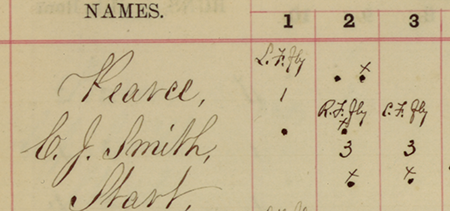 NAMES. 1 2 3
L. F. fly
Pearce, 1
R. F. fly C. F. fly
C. J. Smith, 3 3
Start,